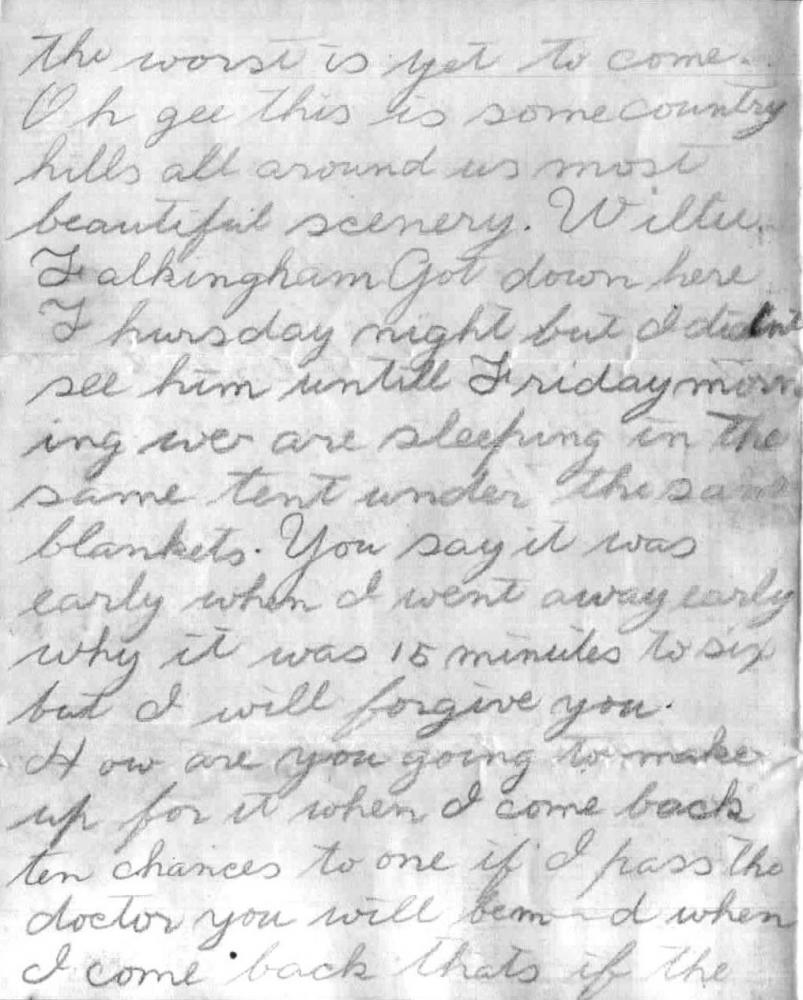 the worst is yet to come.
Oh gee this is some country
hills all around us most
beautiful scenery.
Falkingham Got down here
Thursday night but I didnt
see him untill Friday morn
ing we are sleeping in the
same tent under the same
blankets. You say it was
early when I went away early
why it was 15 minutes to six
but I will forgive you.
How are you going to make
up for it when I come back
ten chances to one if I pass the
doctor you will when
I come back thats if the